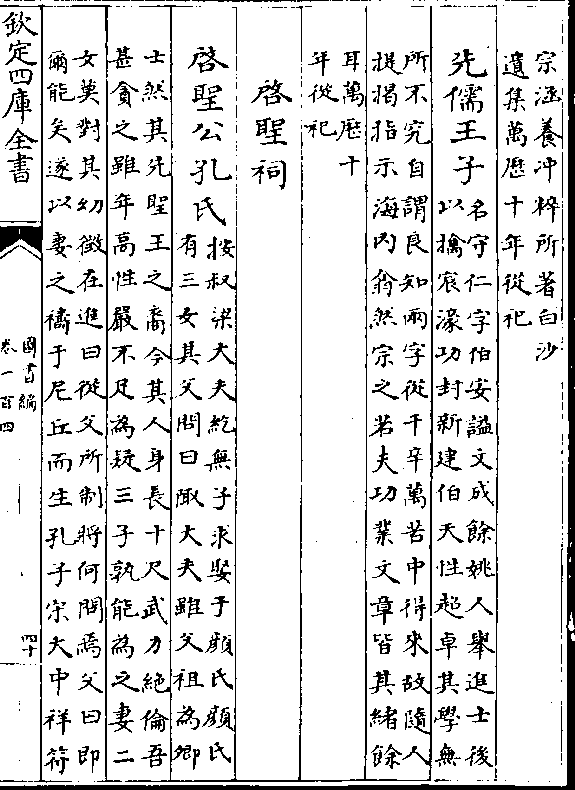 宗涵養冲粹所著白沙
遺集萬歷十年從祀
先儒王子
名守仁字伯安諡文成餘姚人舉進士後
以擒宸濠功封新建伯天性超卓其學無
所不究自謂良知兩字從千辛萬苦中得來故隨人
提掲指示海内翕然宗之若夫功業文章皆其緒餘
耳萬歷十
年從祀
啓聖祠
啓聖公孔氏
按叔梁大夫紇無子求娶于顔氏顔氏
有三女其父問曰陬大夫雖父祖為卿
士然其先聖王之裔今其人身長十尺武力絶倫吾
甚貪之雖年高性嚴不足為疑三子孰能為之妻二
女莫對其幼徵在進曰從父所制將何問焉父曰即
爾能矣遂以妻之禱于尼丘而生孔子宋大中祥符
欽定四庫全書
圖書編
卷一百四
四十